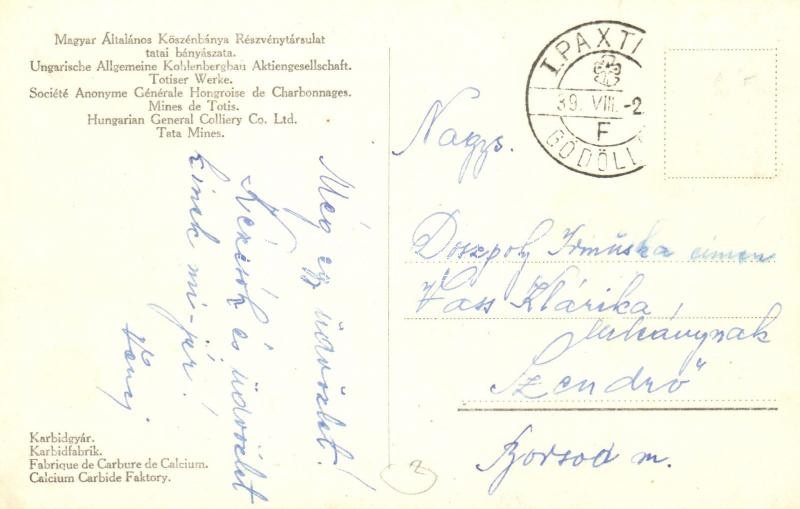 Magyar Általános Kőszénbánya Részvénytársulat
tatai bányászata.
Ungarische Allgemeine Kohlenbergbau Aktiengesellschaft.
Totiser Werke.
Société Anonyme Générale Hongroise de Charbonnages.
Mines de Totis.
Hungarian General Colliery Co. Ltd.
Tata Mines.
I. PAX TI
39. VIII. -2
F
GÖDÖLL
Még egy üdvözlet!
Kézcsók és üdvözlet
kinek mi jár!
Nagys.
Doszpoly Irmuska címén
Vass Klárika
leánynak
Szendrő
Borsod m.
Karbidgyár.
Karbidfabrik.
Fabrique de Carbure de Calcium.
Calcium Carbide Faktory.
2